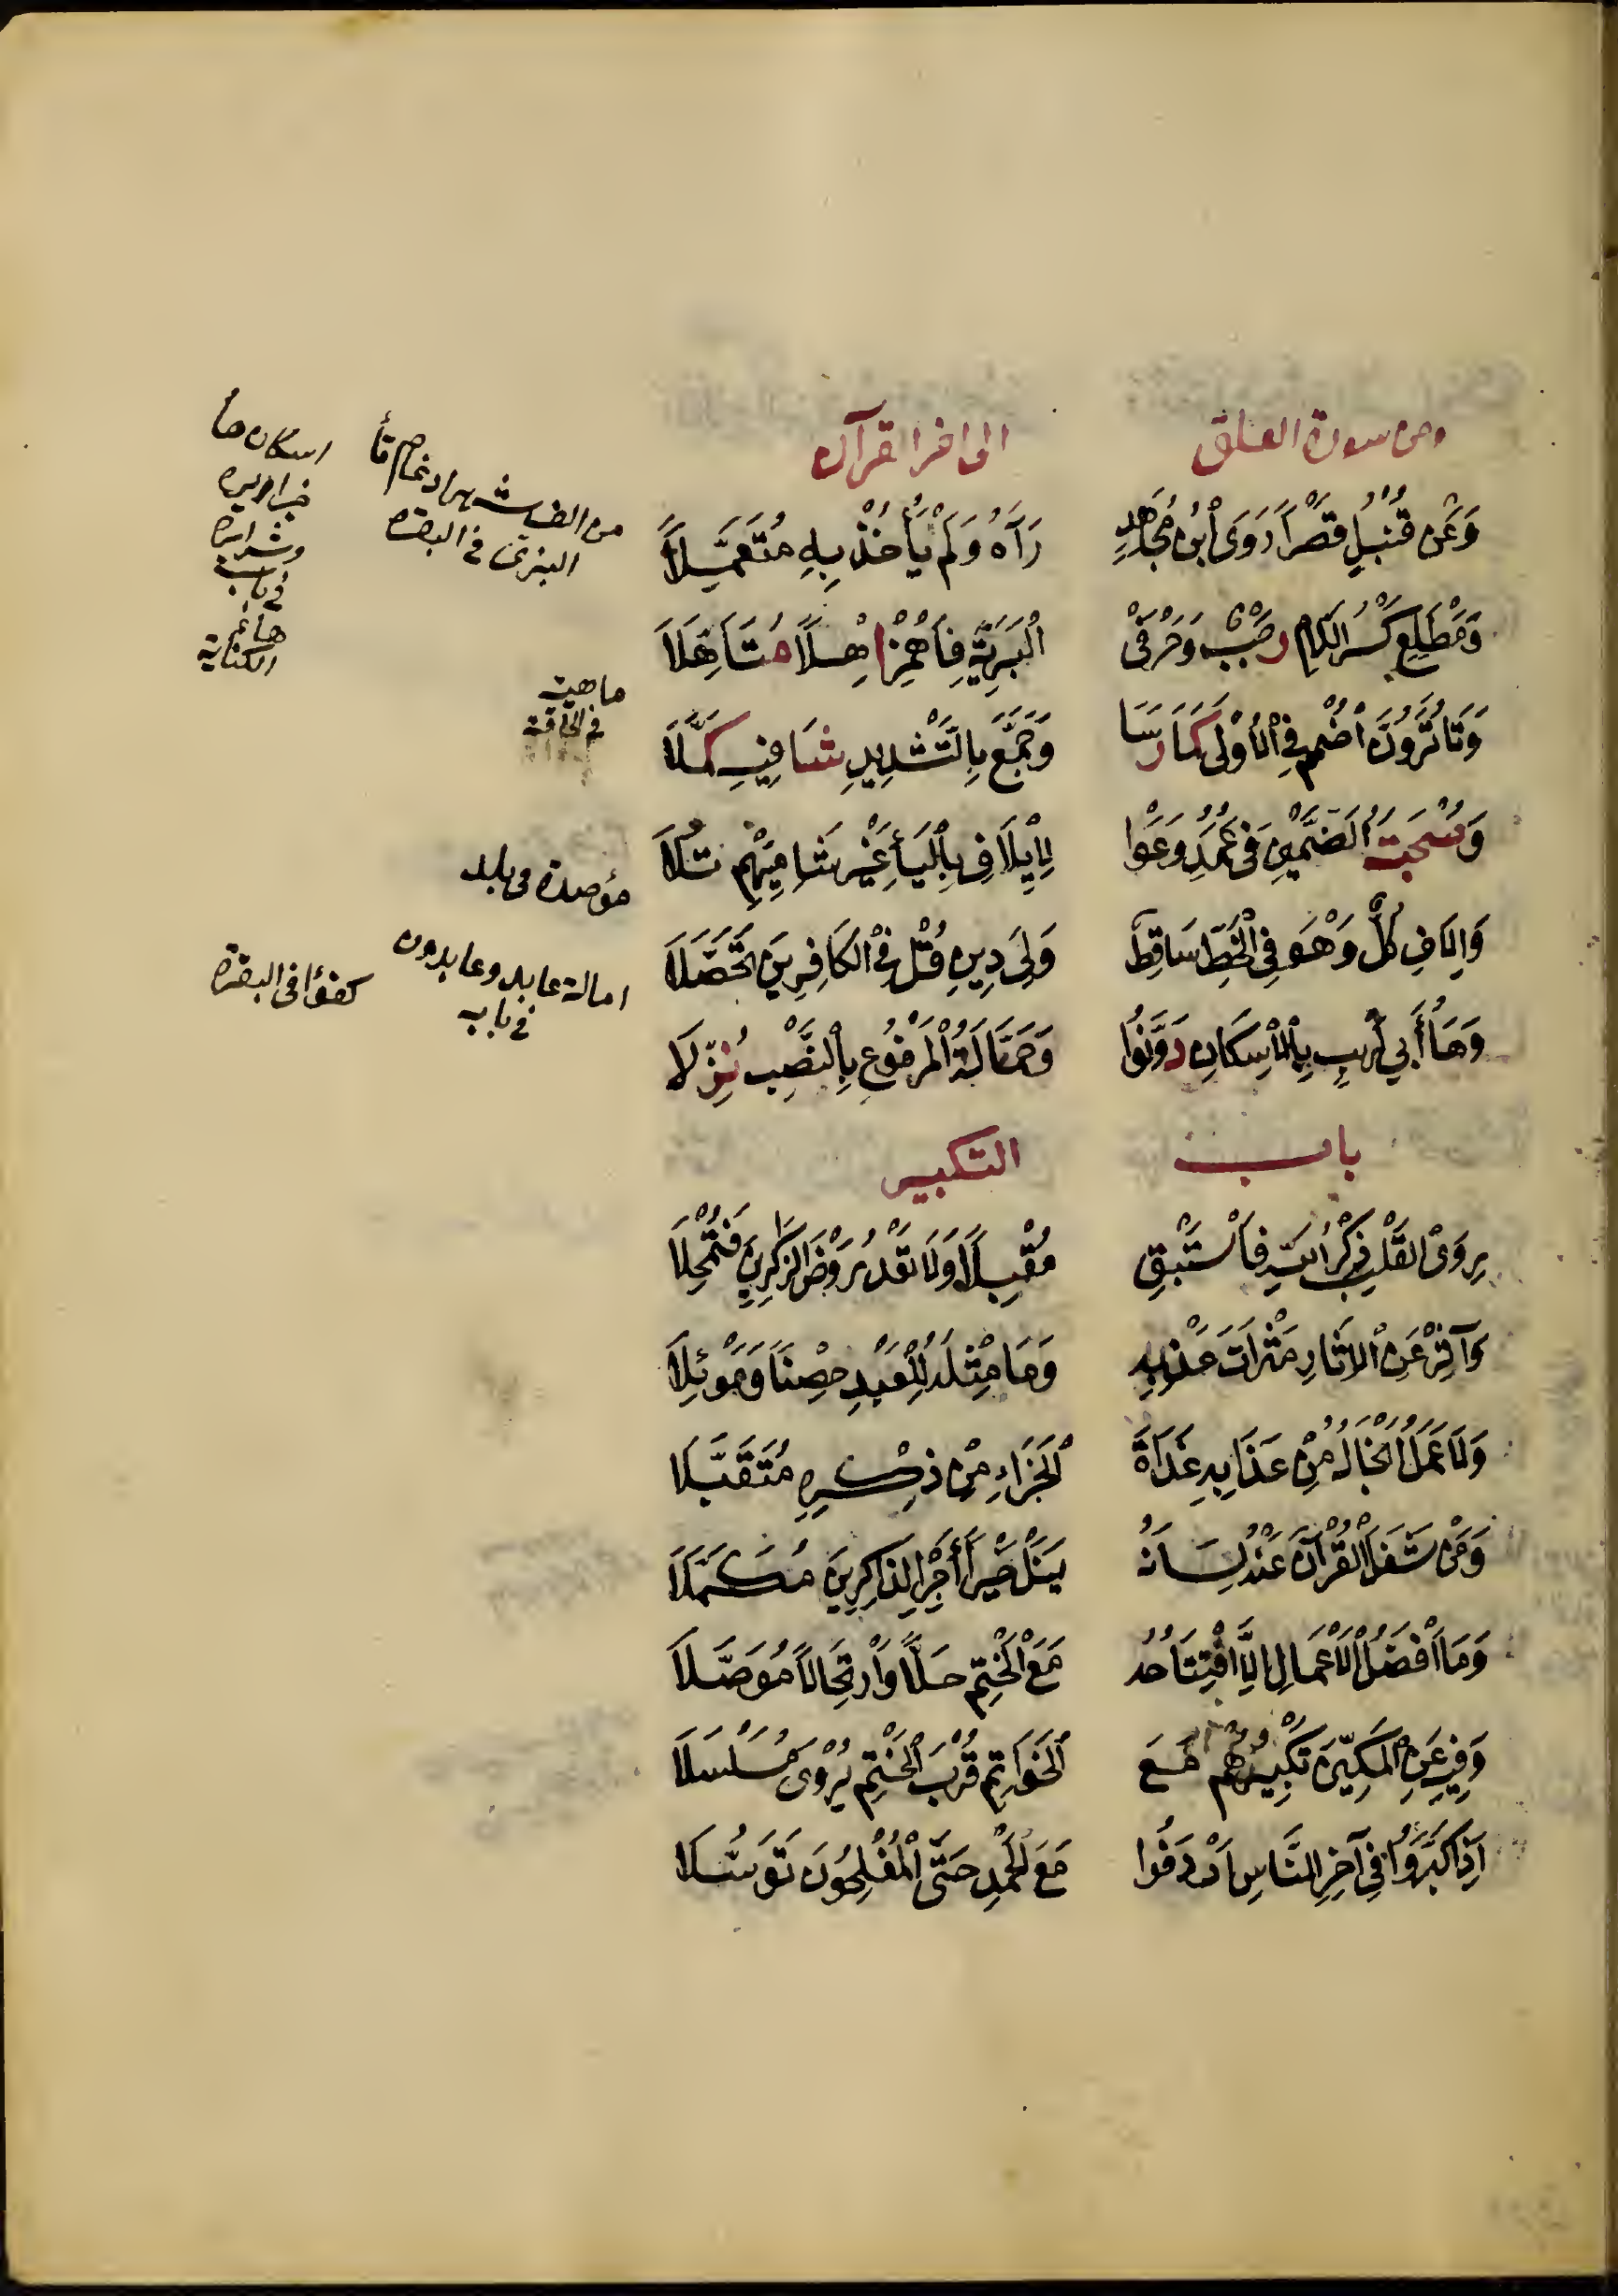 ومن سورة العلق الى اخر القرآن
وَعَنْ قُنْبُلٍ قَصْرًا رَوَى ابْنُ مُجَاهِدٍ رَآهُ وَلَمْ يَأْخُذْ بِهِ مُتَعَمِّلَا
وَمَطْلَعِ كَسْرُ اللَّامِ رَحْبٌ وَحَرْفَيْ الْبَرِيَّةِ فَاهْمِزْ اهِلًا مُتَأَهِّلَا
وَتَا تَرَوُنَّ اضْمُمْ فِي الْأُولَى كَمَا رَسَا وَجَمَّعَ بِالتَّشْدِيدِ شَافِيهِ كَمَّلَا
وَصُحْبَةُ الضَّمَّيْنِ فِي عُمُدٍ وَعَوْا لِإِيلَافِ بِالْيَا غَيْرُ شَامِيِّهِمْ تَلَا
وَإِيلَافِ كُلٌّ وَهْوَ فِي الْخَطِّ سَاقِطٌ وَلِيَ دِينِ قُلْ فِي الْكَافِرِينَ تَحَصَّلَا
وَهَا أَبِي لَهْبٍ بِالْإِسْكَانِ دَوَّنُوا وَحَمَّالَةُ الْمَرْفُوعُ بِالنَّصْبِ نُزِّلَا
باب التكبير
رِوَى الْقَلْبِ ذِكْرُ اللهِ فَاسْتَسْقِ مُقْبِلًا وَلَا تَعْدُ رَوْضَ الذَّاكِرِينَ فَتُمْحِلَا
وَآثِرْ عَنِ الْآثَارِ مَثْرَاتَ عَذْبِهِ وَمَا مِثْلُهُ لِلْعَبْدِ حِصْنًا وَمَوْئِلَا
وَلَا عَمَلٌ أَنْجَى لَهُ مِنْ عَذَابِهِ غَدَاةَ الْجَزَاءِ مِنْ ذِكْرِهِ مُتَقَبَّلَا
وَمَنْ شَغَلَ الْقُرْآنُ عَنْهُ لِسَانَهُ يَنَلْ خَيْرَ أَجْرِ الذَّاكِرِينَ مُكَمَّلَا
وَمَا أَفْضَلُ الْأَعْمَالِ إِلَّا افْتِتَاحُهُ مَعَ الْخَتْمِ حَلًّا وَارْتِحَالًا مُوَصَّلَا
وَفِيهِ عَنِ الْمَكِّيِّينَ تَكْبِيرُهُمْ مَعَ الْخَوَاتِمِ قُرْبَ الْخَتْمِ يُرْوَى مُسَلْسَلَا
إِذَا كَبَّرُوا فِي آخِرِ النَّاسِ أَرْدَفُوا مَعَ الْحَمْدِ حَتَّى الْمُفْلِحُونَ تَوَسُّلَا
من الف شهر ادغام تأ
البزى فى البقرة
اسكان ها
خيرا يره
وشرا يره
فى باب
هاء
الكناية
ماهيه
فى الحاقة
مؤصدة فى بلد
امالة عابد وعابدون
فى بابه
كفؤا فى البقرة